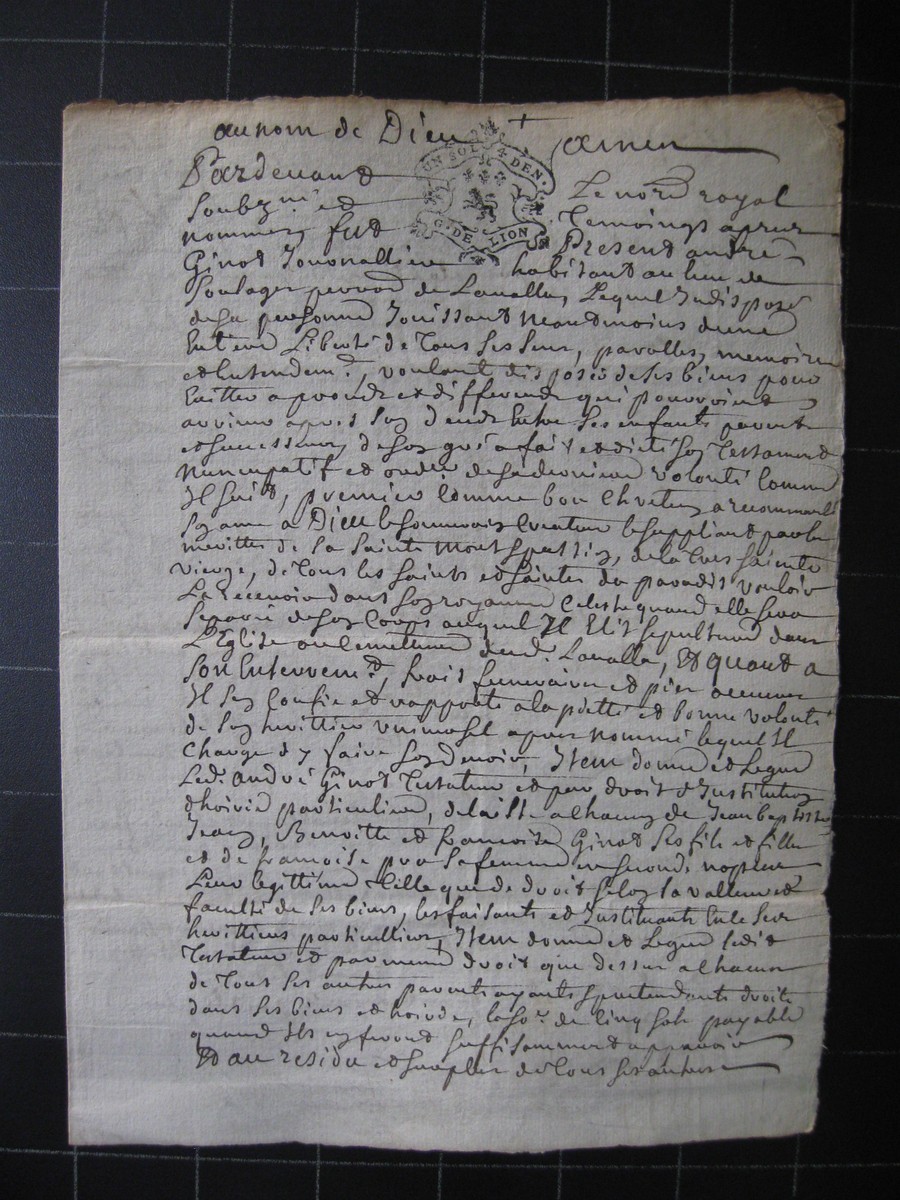 au nom de Dieu + amen
UN SOL 4 DEN.
G. DE LION
Pardevant Le not.re royal
Soubz.né et Temoings apres
nommez fut Present andré
Ginot Journallier habitant au lieu de
Soulages parroi. de Lavalla, Lequel Indisposé
de sa personne Jouissant neantmoins dune
Entiere Liberté de Tous ses sens, parolles, memoire
et Entendem.t, voulant disposer de ses biens pour
Eviter aproces et differends qui pourroient
arriver apres son deces Entre ses enfants parents
et successeurs, de son gré a fait et dicté son Testament
Nuncupatif et ordre. de sa derniere volonté Comme
Il suit, premier Comme bon Chretien a recommandé
Son ame a Dieu le Souverain Createur le suppliant par les
merittes de sa Sainte Mort & passion, de la tres sainte
vierge, de Tous les saints et saintes du paradis vouloir
La recevoir dans son royaume Celeste quand elle sera
Separée de son Corps auquel Il Elit sepulture dans
L'Eglise ou Cemettiere dud. Lavalla, Et quant a
Son Enterrem.t, frais funeraires et pies aumones
Il s'en Confie et rapporte a la pietté et bonne volonté
de son herittier universel apres nommé lequel Il
Charge d'y faire son devoir, Item donne et Legue
Led. andré Ginot Testateur et par droit d'Institution
d'hoirie particuliere, delaisse a chacun de Jean baptiste
Jean, Benoitte et francoise Ginot ses fils et filles
et de francoise sa femme en secondes nopces
Leur legittime Telle que de droit selon la valleur et
faculté de ses biens, les faisants et Instituants En ce ses
herittiers particulliers, Item donne et Legue ledit
Testateur et par meme droit que dessus a chacun
de Tous ses autres parents ayants & pretendants droits
dans ses biens et hoirie, la So.e de Cinq sols payable
quand Ils en feront suffisamment apparoir
Et au residu et surplus de Tous ses autres